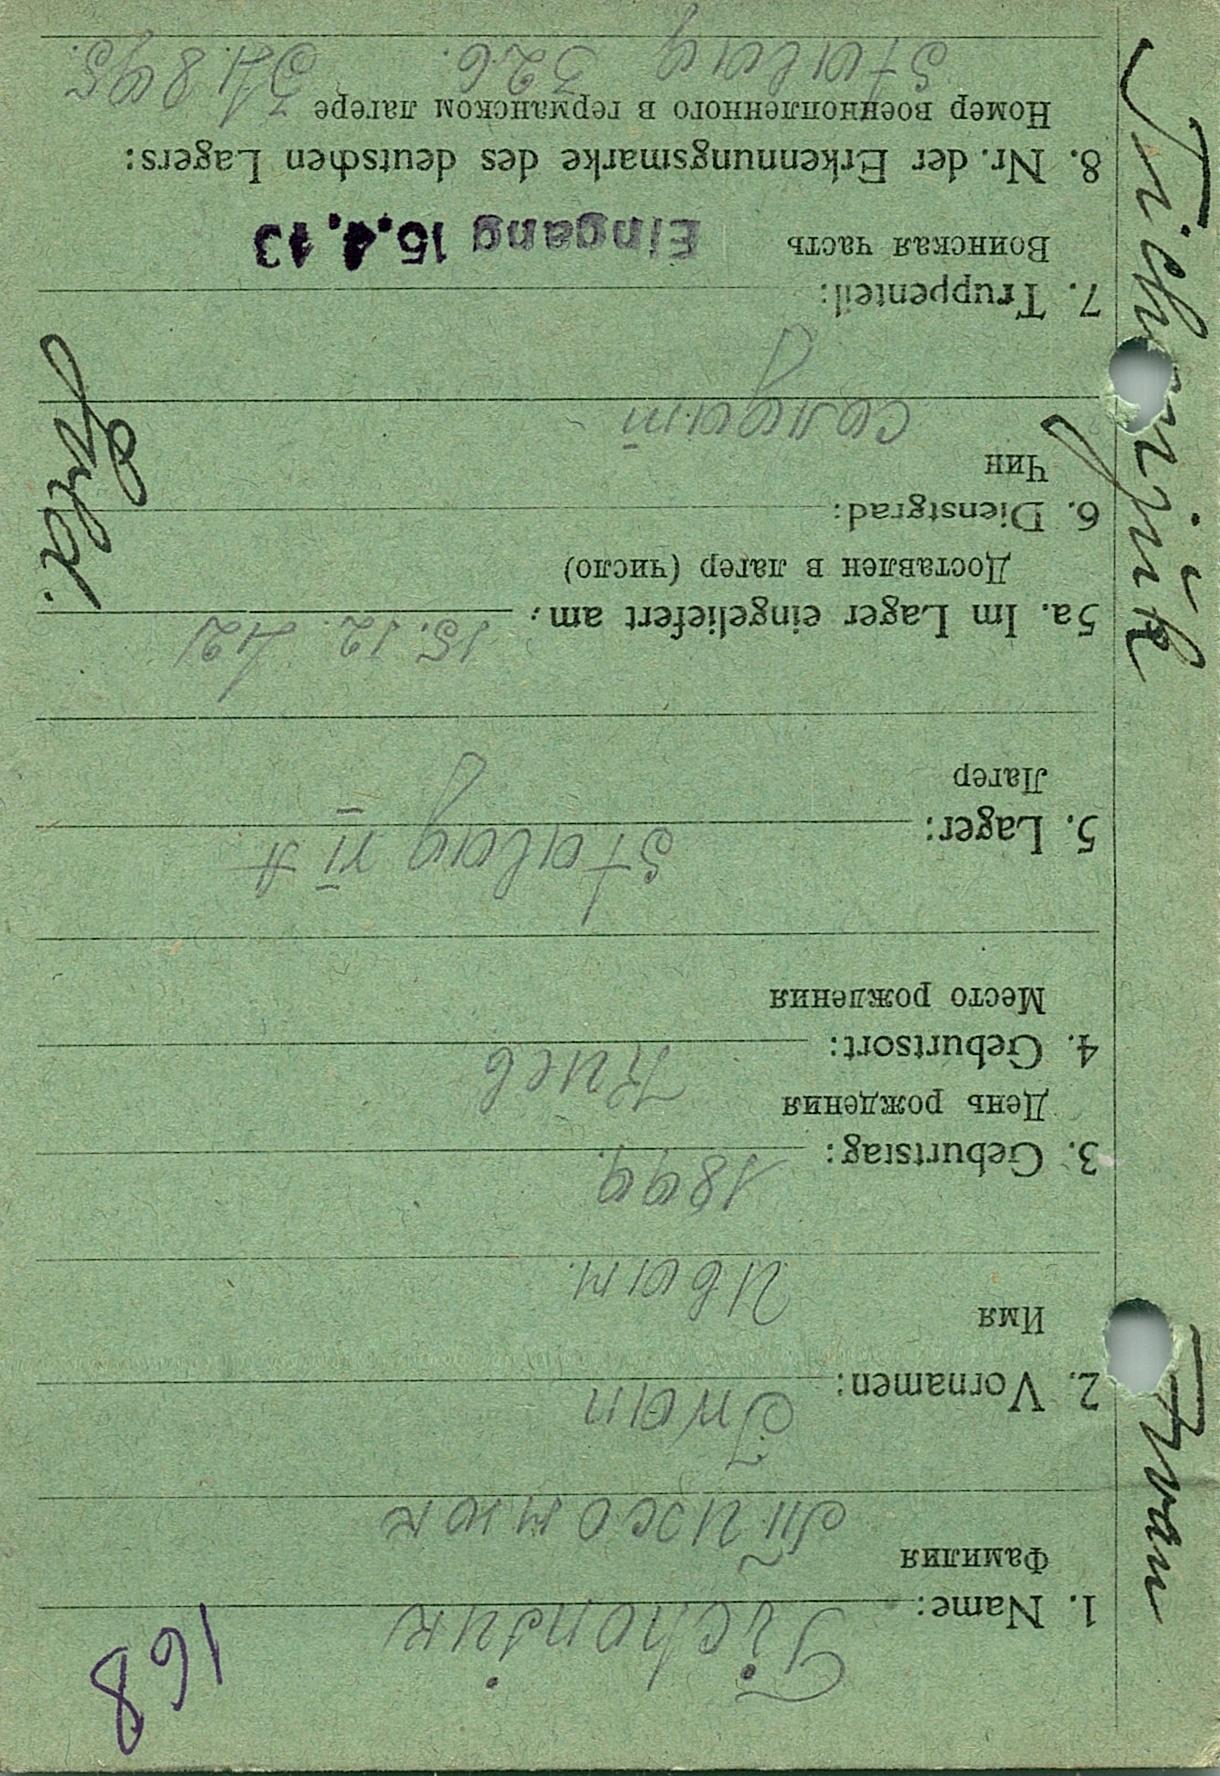 168
Tichonjuk
1. Name:
Фамилия
Тихонюк
Iwan
2. Vornamen:
Имя
Иван.
1899.
3. Geburtstag:
День рождения
Киев
4. Geburtsort:
Место рождения
Stalag VI A
5. Lager:
Лагер
15. 12. 42
5a. Im Lager eingeliefert am:
Доставлен в лагер (число)
6. Dienstgrad:
Чин
солдат
7. Truppenteil:
Воинская часть
Eingang 15. 4. 43
8. Nr. der Erkennungsmarke des deutschen Lagers:
Номер военнопленного в германском лагере
Stalag 326.
Tichonjuk Iwan